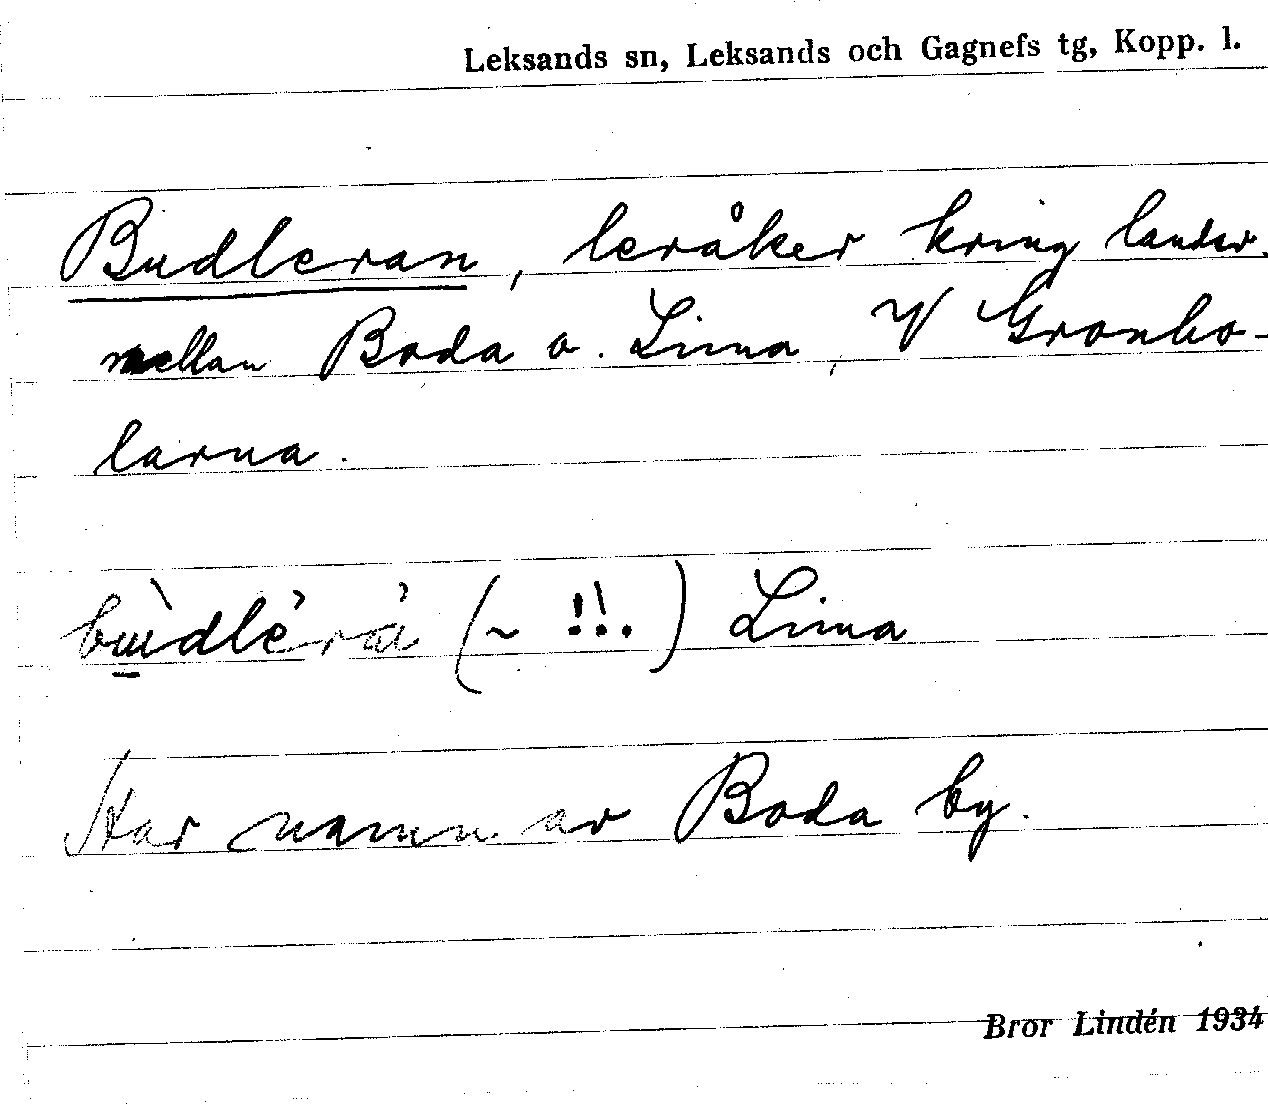 Leksands sn, Leksands och Gagnefs tg, Kopp. l.
Budleran, leråker kring landsv.
mellan Boda o. Lima, V Gronbo-
larna.
(~ !!.) Lima
Har namn av Boda by.
Bror Lindén 1934